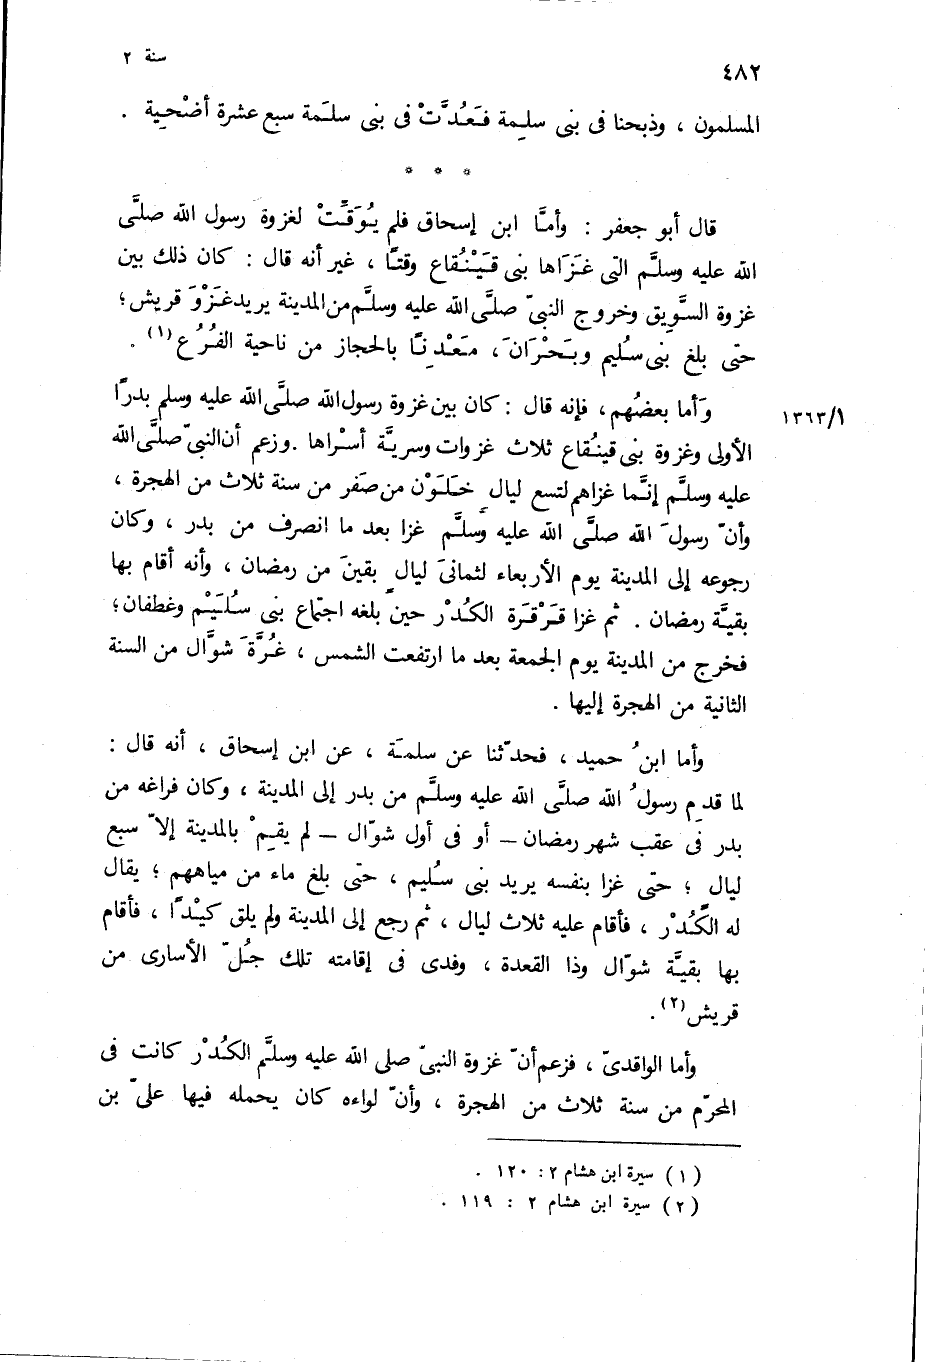 ٤٨٢
سنة ٢
المسلمون ، وذبحنا فى بنى سلِمة فعُدَّتْ فى بنى سلمة سبع عشرة أضْحِية .
* * *
قال أبو جعفر : وأمَّا ابن إسحاق فلم يُوَقِّتْ لغزوة رسول الله صلَّى
الله عليه وسلَّم التى غَزَاها بنى قَيْنُقاع وقتًا ، غير أنه قال : كان ذلك بين
غزوة السَّوِيق وخروج النبىّ صلَّى الله عليه وسلَّم من المدينة يريد غَزْوَ قريش؛
حتى بلغ بنى سُليم وبَحْرَانَ، مَعْدِنًا بالحجاز من ناحية الفُرُع(١) .
وَأما بعضُهم، فإنه قال : كان بين غزوة رسول الله صلَّى الله عليه وسلم بدرًا
١٣٦٣/١
الأولى وغزوة بنى قينُقاع ثلاث غزوات وسريَّة أسْراها . وزعم أن النبىّ صلَّى الله
عليه وسلَّم إنَّما غزاهم لتسع ليالٍ خَلَوْن من صَفر من سنة ثلاث من الهجرة ،
وأنّ رسولَ الله صلَّى الله عليه وسلَّم غزا بعد ما انصرف من بدر ، وكان
رجوعه إلى المدينة يوم الأربعاء لثمانىَ ليالٍ بقينَ من رمضان ، وأنه أقام بها
بقيَّة رمضان . ثم غزا قَرْقرة الكُدْر حين بلغه اجتماع بنى سُلَيْم وغطفان؛
فخرج من المدينة يوم الجمعة بعد ما ارتفعت الشمس ، غُرَّةَ شوَّال من السنة
الثانية من الهجرة إليها .
وأما ابنُ حميد ، فحدّثنا عن سلمَة ، عن ابن إسحاق ، أنه قال :
لما قدِم رسولُ الله صلَّى الله عليه وسلَّم من بدر إلى المدينة ، وكان فراغه من
بدر فى عقب شهر رمضان – أو فى أول شوّال – لم يقِمْ بالمدينة إلاّ سبع
ليالٍ ؛ حتى غزا بنفسه يريد بنى سُليم ، حتى بلغ ماء من مياههم ؛ يقال
له الكُدْر ، فأقام عليه ثلاث ليال ، ثم رجع إلى المدينة ولم يلق كيْدًا ، فأقام
بها بقيَّة شوّال وذا القعدة ، وفدى فى إقامته تلك جُلّ الأسارى من
قريش(٢).
وأما الواقدىّ ، فزعم أنّ غزوة النبىّ صلى الله عليه وسلَّم الكُدْر كانت فى
المحرّم من سنة ثلاث من الهجرة ، وأنّ لواءه كان يحمله فيها علىّ بن
(١) سيرة ابن هشام ٢: ١٢٠ .
(٢) سيرة ابن هشام ٢ : ١١٩ .